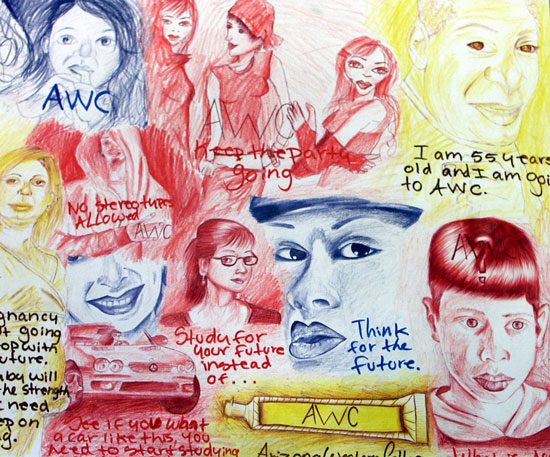 AWC
AWC
Keep the party
going
I am 55 years
old and I am goi
to AWC.
No stereotypes
ALLOWED
AWC
AWC
?
gnancy
t going
op with
uture.
aby will
the strength
need
ep on
g.
Study for
your future
instead
of...
Think
for the
future.
AWC
See if you want
a car like this, you
need to start studying